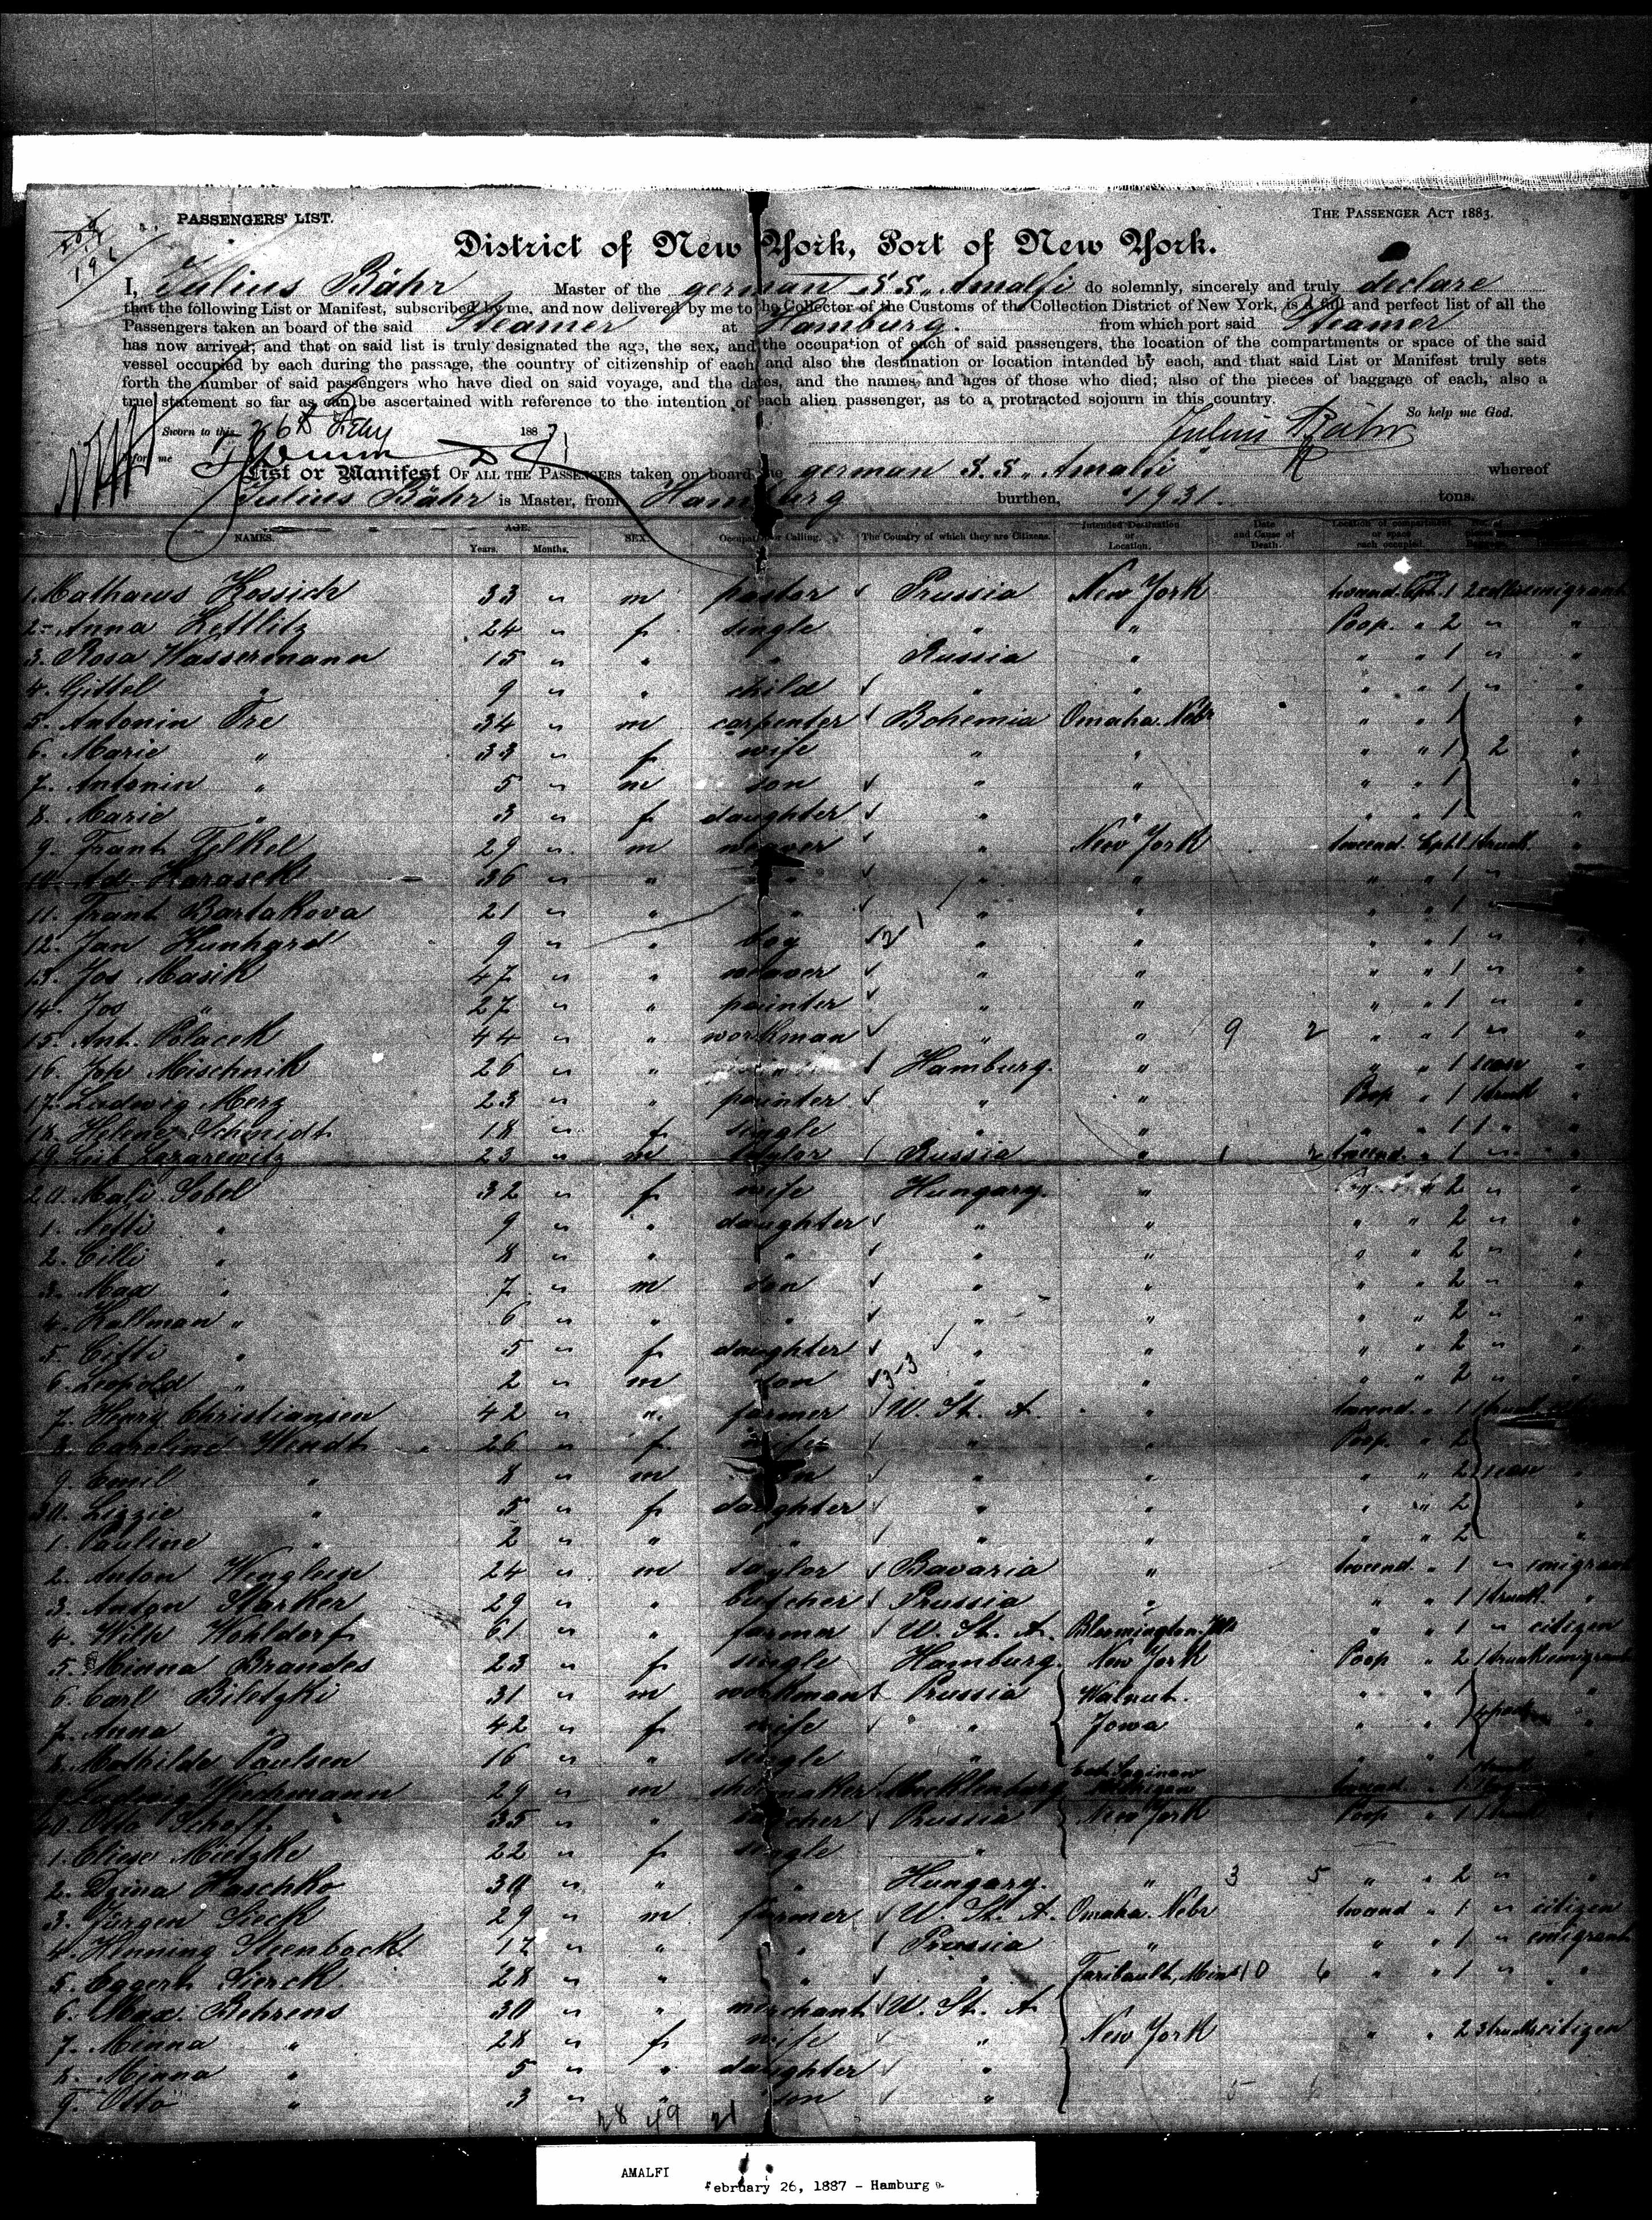 PASSENGERS' LIST.
THE PASSENGER ACT 1883.
District of New York, Port of New York.
I, Julius Bähr Master of the german S.S. „Amalfi do solemnly, sincerely and truly declare
that the following List or Manifest, subscribed by me, and now delivered by me to the Collector of the Customs of the Collection District of New York, is a full and perfect list of all the
Passengers taken an board of the said Steamer at Hamburg. from which port said Steamer
has now arrived; and that on said list is truly designated the age, the sex, and the occupation of each of said passengers, the location of the compartments or space of the said
vessel occupied by each during the passage, the country of citizenship of each and also the destination or location intended by each, and that said List or Manifest truly sets
forth the number of said passengers who have died on said voyage, and the dates, and the names, and ages of those who died; also of the pieces of baggage of each, also a
true statement so far as can be ascertained with reference to the intention of each alien passenger, as to a protracted sojourn in this country.
So help me God.
Sworn to this 26th Feby 1887
Julius Bähr
before me
List or Manifest OF ALL THE PASSENGERS taken on board the german S.S. „ whereof
Julius Bähr is Master, from Hamburg burthen, 1931. tons.
NAMES. AGE. Years. Months. SEX. Occupation or Calling. The Country of which they are Citizens. Intended Destination or Location. Date and Cause of Death. Location of compartment or space each occupied.
1. Mathaus Kossich 33 " m pastor Prussia New York 1 2
2. Anna Zettlitz 24 " f single " " Poop " 2 " "
3. Rosa Wassermann 15 " " " Russia " " " 1 " "
4. Gittel " 9 " " child " " " " 1 " "
5. Antonin Tre 34 " m carpenter Bohemia Omaha Nebr " " 1 "
6. Marie " 33 " f wife " " " " 1 2 "
7. Antonin " 5 " m son " " " " 1 "
8. Marie " 3 " f daughter " " " " 1 "
9. Frant 29 " m weaver " New York 1 trunk "
10. Ad. Karasek 36 " " " " " " " 1 " "
11. Frant Bartakova 21 " " " " " " " 1 " "
12. Jan Kunhard 9 " " boy " " " " 1 " "
13. Jos Masik 47 " " weaver " " " " 1 " "
14. Jos " 27 " " painter " " " " 1 " "
15. Ant. Polacek 44 " " workman " " 9 2 " " 1 " "
16. Joh Mischnik 26 " " " Hamburg. " " " 1 1 case "
17. Ludwig Merz 23 " " painter " " Poop " 1 1 trunk "
18. Helene Schmidt 18 " f single " " " " 1 1 " "
19. Leib Lazarewitz 23 " m taylor Russia " 1 " 1 " "
20. Mali Sobel 32 " f wife Hungary. " " 2 " "
1. Netti " 9 " " daughter " " " " 2 " "
2. Cilli " 8 " " " " " " " 2 " "
3. Max " 7 " m son " " " " 2 " "
4. Kallman " 6 " " " " " " " 2 " "
5. " 5 " f daughter " " " " 2 " "
6. Leopold " 2 " m son " " " " 2 " "
7. Henry Christiansen 42 " " farmer U. St. A. " " 1 trunk
8. Caroline Wendt 26 " f wife " " Poop. " 2
9. Emil " 8 " m son " " " " 2 1 case "
30. Lizzie " 5 " f daughter " " " " 2 "
1. Pauline " 2 " " " " " " " 2 "
2. Anton 24 " m taylor Bavaria " " 1 " emigrant
3. Anton Starker 29 " " butcher Prussia " " " 1 1 trunk "
4. Wilh Wohldorf 61 " " farmer U. St. A. Bloomington " " 1 " citizen
5. Minna Brandes 23 " f single Hamburg. New York Poop " 2 1 trunk emigrant
6. Carl Biletzki 31 " m workman Prussia Walnut. " " 1 "
7. Anna " 42 " f wife " Iowa " " 1 "
8. Mathilde Paulsen 16 " " single " " " 1 "
9. Ludwig Wiedemann 29 " m shoemaker Mecklenburg East Saginaw Michigan " 1
40. Otto Schoff. 35 " " butcher Prussia New York Poop " 1 1 trunk "
1. Eliese Mietzke 22 " f single "
2. Haschko 30 " " " Hungary. " 3 5 " " 2 " "
3. Jürgen Sieck 29 " m farmer U. St. A. Omaha Nebr " 1 " citizen
4. Henning Steenbock 17 " " " Prussia " " " 1 " emigrant
5. Eggert Sierck 28 " " " " Faribault, Min 10 6 " " 1 " "
6. Max. Behrens 30 " " merchant U. St. A
7. Minna " 28 " f wife " New York " " 2 3 trunks citizen
8. Minna " 5 " " daughter "
9. Otto " 3 " " son "
28 49 21
AMALFI
February 26, 1887 - Hamburg